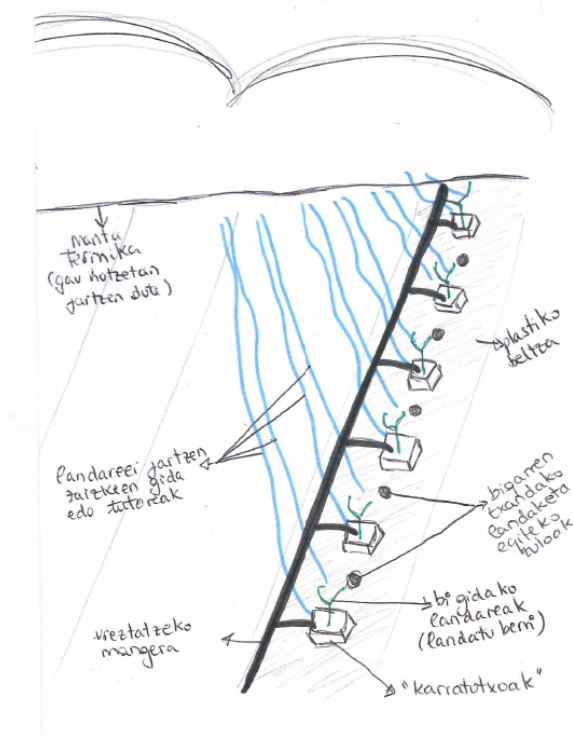 manta
termika
(gau hotzetan
jartzen dute)
plastiko
beltza
landareei jartzen
zaizkeen gida
edo tutoreak
bigarren
txandako
landaketa
egiteko
zuloak
bi gidako
landareak
(landatu berri)
ureztatzeko
mangera
"karratutxoak"